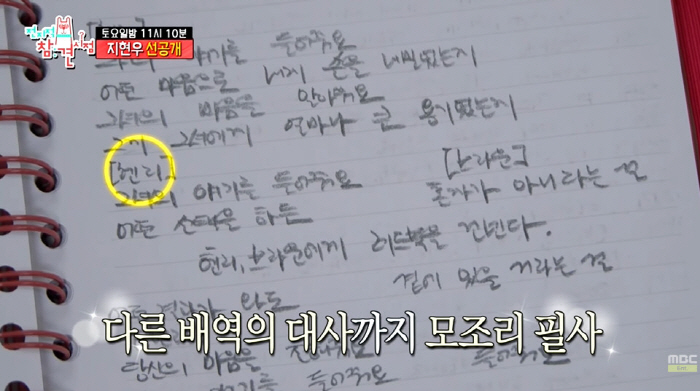 전지적 참견시점
토요일밤 11시 10분
지현우 선공개
그녀의 얘기를 들어줘요
어떤 마음으로 내게 손을 내밀었는지
그녀의 마음을 알아줘요
그가 그녀에게 얼마나 큰 용기였는지
[헨리] [브라운]
그녀의 얘기를 들어줘요 혼자가 아니라는 걸
어떤 선택을 하든
헨리, 브라운에게 레드북을 건넨다.
곁에 있을 거라는 걸
어떤 와도
다른 배역의 대사까지 모조리 필사
당신의 마음을
들어줘요 들어줘요
MBC